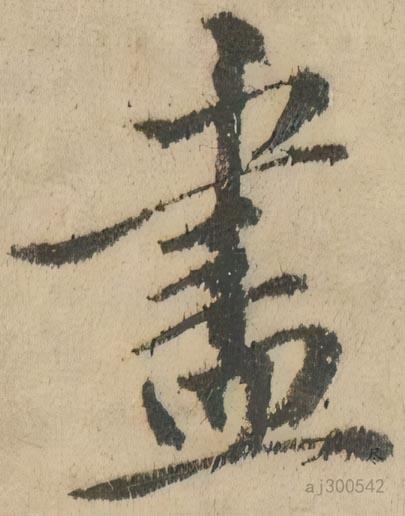 盡
aj300542